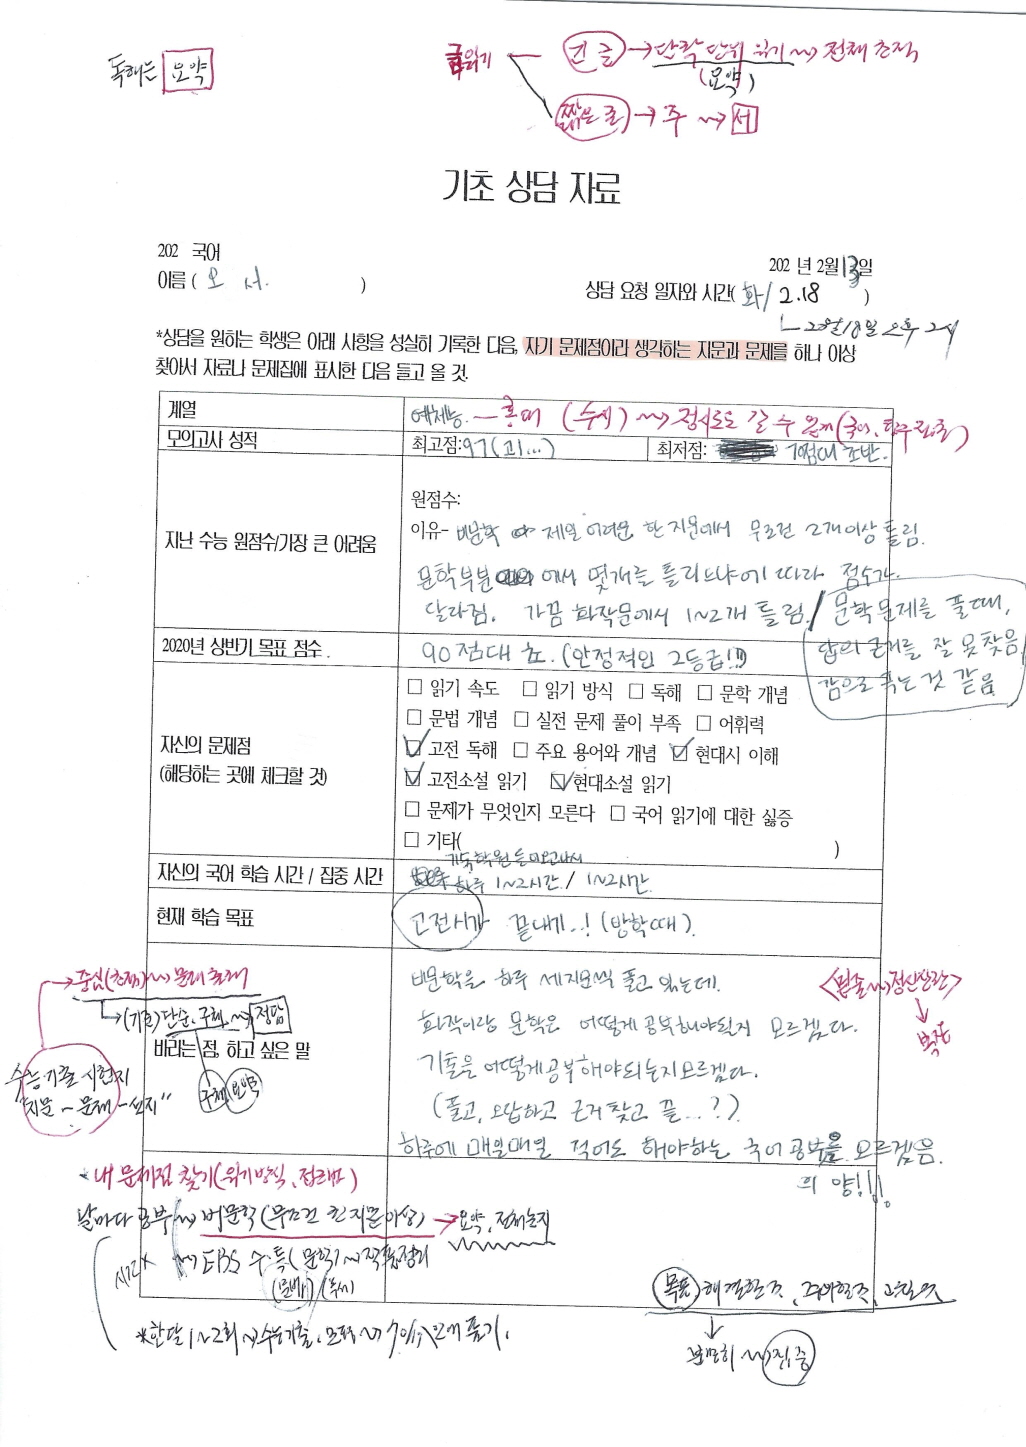 독해는 요약
글읽기 긴 글 → 단락 단위 읽기 ~> 전체 초점
(요약)
짧은 글 → 주 ~> 서
기초 상담 자료
202 국어
이름 ( 오 서. )
202 년 2월 13일
상담 요청 일자와 시간( 화/ 2.18 )
2월 18일 오후 2시
*상담을 원하는 학생은 아래 사항을 성실히 기록한 다음, 자기 문제점이라 생각하는 지문과 문제를 하나 이상
찾아서 자료나 문제집에 표시한 다음 들고 올 것.
계열 예체능. — 홍대 (수시) ~> 정시로도 갈 수
모의고사 성적 최고점:97(고1...) 최저점: 7점대 초반.
원점수:
지난 수능 원점수/가장 큰 어려움
이유- 비문학 제일 어려운 한 지문에서 무조건 2개 이상 틀림.
문학부분 에서 몇개를 틀리느냐에 따라 점수가
달라짐. 가끔 화작문에서 1~2개 틀림. / 문학문제를 풀때,
답의 근거를 잘 못찾음,
감으로 푸는 것 같음
2020년 상반기 목표 점수 . 90점대 초. (안정적인 2등급!!)
자신의 문제점
(해당하는 곳에 체크할 것)
☐ 읽기 속도 ☐ 읽기 방식 ☐ 독해 ☐ 문학 개념
☐ 문법 개념 ☐ 실전 문제 풀이 부족 ☐ 어휘력
☑ 고전 독해 ☐ 주요 용어와 개념 ☑ 현대시 이해
☑ 고전소설 읽기 ☑ 현대소설 읽기
☐ 문제가 무엇인지 모른다 ☐ 국어 읽기에 대한 싫증
☐ 기타( )
자신의 국어 학습 시간 / 집중 시간 하루 1~2시간 / 1~2시간
현재 학습 목표 고전시가 끝내기..! (방학때)
바라는 점, 하고 싶은 말
비문학을 하루 세지문씩 풀고 있는데.
화작이랑 문학은 어떻게 공부해야될지 모르겠다.
기출을 어떻게 공부해야되는지 모르겠다.
(풀고, 오답하고 근거 찾고 끝...?)
하루에 매일매일 적어도 해야하는 국어 공부를 모르겠음.
의 양!!!
→ 중심(초점) ~> 문제 출제
→ (기출) 단순, 구체 ~> 정답
구체 요약
수능 기출 시험지
"지문 ~ 문제 ~ 선지"
* 내 문제점 찾기 (읽기 방식, 접근법)
날마다 공부 ~> 비문학 (무조건 긴 지문 이상) → 요약, 전체 논지
~> EBS 수·특 (문학)
* 한달 1~2회 ~> 수능기출,
목표
분명히 ~> 집중